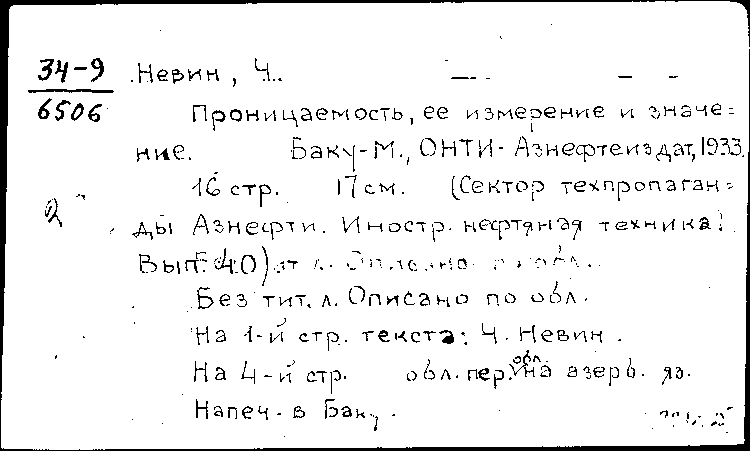 34-9 Невин, Ч.
6506 Проницаемость, ее измерение и значе=
ние. Баку-М., ОНТИ-Азнефтеиздат, 1933.
16 стр. 17 см. (Сектор техпропаган=
2 ды Азнефти. Иностр. нефтяная техника.
Вып. 40)
Без тит. л. Описано по обл.
На 1-й стр. текста: Ч. Невин.
На 4-й стр. обл. пер. обл. на азерб. яз.
Напеч. в Баку.